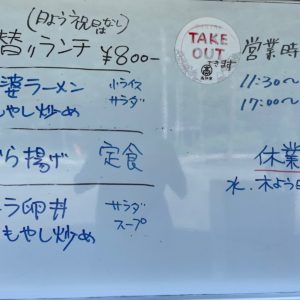 (日よう祝日なし)
替りランチ ¥800-
婆ラーメン 小ライス
もやし炒め サラダ
ら揚げ 定食
ラ卵丼 サラダ
もやし炒め スープ
TAKE
OUT
できます
営業時
11:30〜
17:00〜
休業
水.木よう日